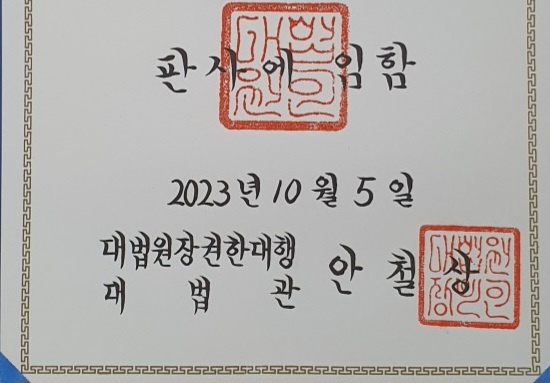 판사에 임함
2023년 10월 5일
대법원장권한대행
대법관 안철상